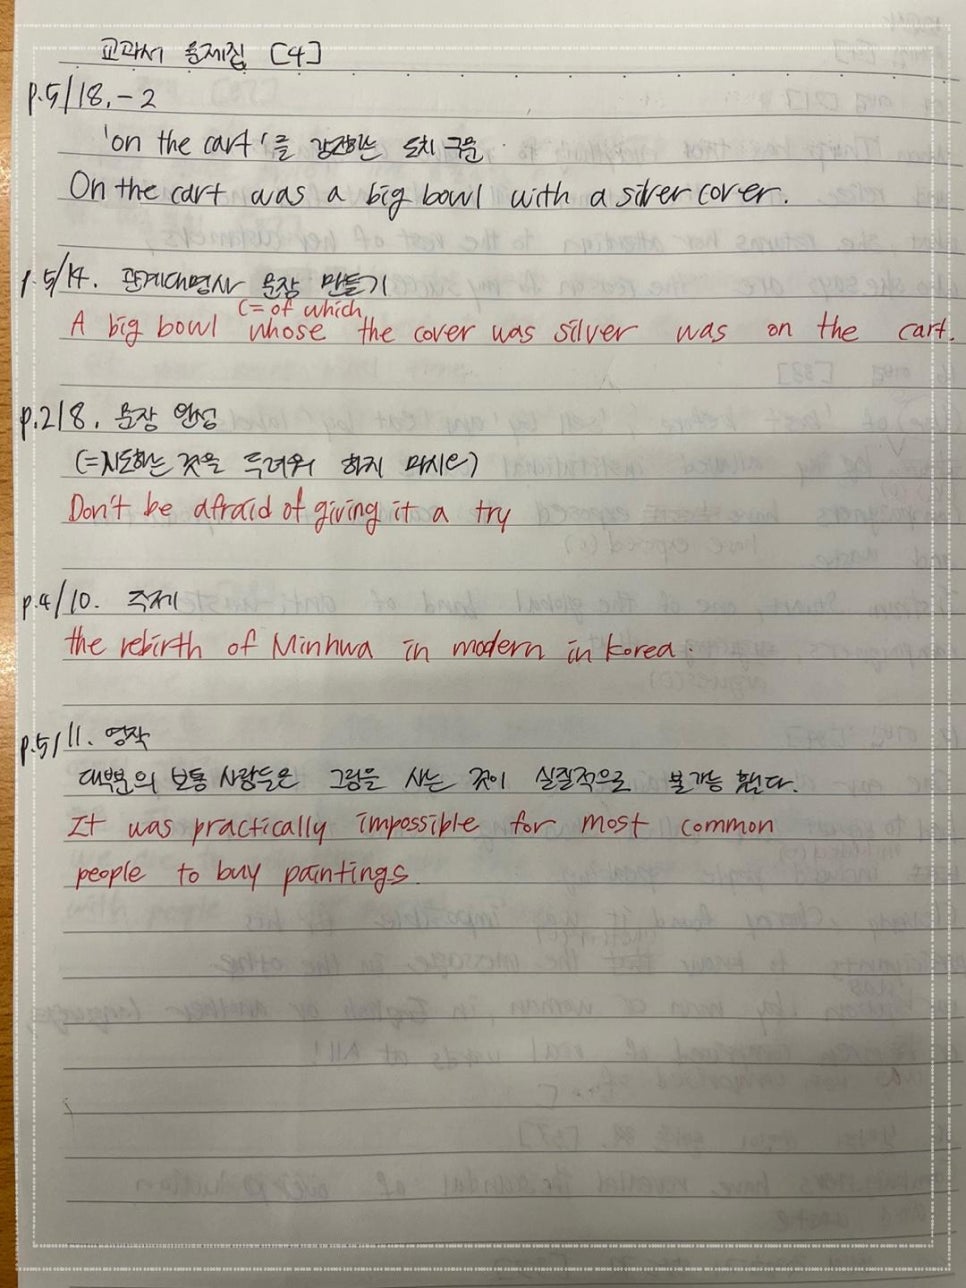 교과서 문제집 [4]
p.5/18.-2
'on the cart'를 강조하는 도치 구문
On the cart was a big bowl with a silver cover.
p.5/14. 관계대명사 문장 만들기
(=of which
A big bowl whose the cover was silver was on the cart.
p.2/8. 문장 완성
(=시도하는 것을 두려워 하지 마시오)
Don't be afraid of giving it a try
p.4/10. 주제
the rebirth of Minhwa in modern in Korea.
p.5/11. 영작
대부분의 보통 사람들은 그림을 사는 것이 실질적으로 불가능 했다.
It was practically impossible for most common
people to buy paintings.